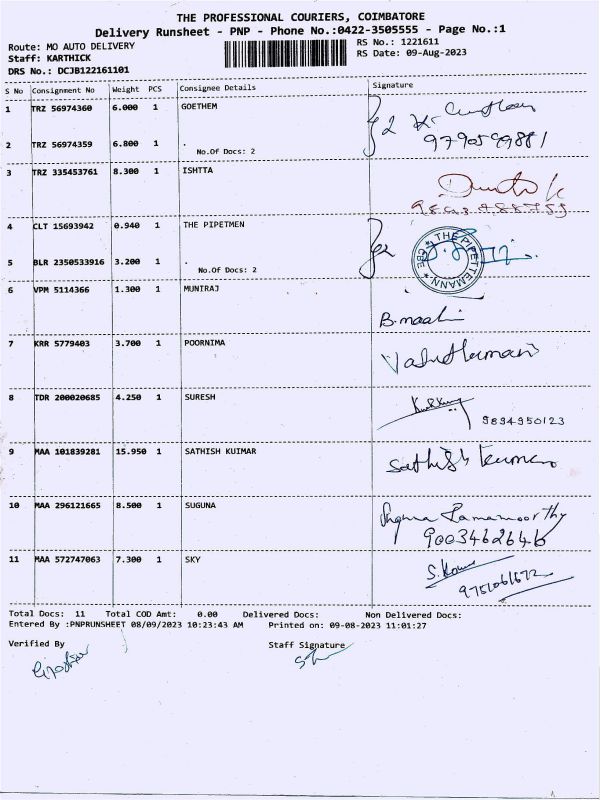 THE PROFESSIONAL COURIERS, COIMBATORE
Delivery Runsheet - PNP - Phone No.:0422-3505555 - Page No.:1
Route: MO AUTO DELIVERY RS No.: 1221611
Staff: KARTHICK RS Date: 09-Aug-2023
DRS No.: DCJB122161101
S No Consignment No Weight PCS Consignee Details Signature
1 TRZ 56974360 6.000 1 GOETHEM
2 TRZ 56974359 6.800 1 . 2
No.Of Docs: 2
3 TRZ 335453761 8.300 1 ISHTTA
4 CLT 15693942 0.940 1 THE PIPETMEN
THE PIPETTEMANN CBE
5 BLR 2350533916 3.200 1 . 2
No.Of Docs: 2
6 VPM 5114366 1.300 1 MUNIRAJ
7 KRR 5779403 3.700 1 POORNIMA
8 TDR 200020685 4.250 1 SURESH
9894950123
9 MAA 101839281 15.950 1 SATHISH KUIMAR Sathish Kumar
10 MAA 296121665 8.500 1 SUGUNA Suguna Ramamoorthy
9003462646
11 MAA 572747063 7.300 1 SKY
9751061672
Total Docs: 11 Total COD Amt: 0.00 Delivered Docs: Non Delivered Docs:
Entered By :PNPRUNSHEET 08/09/2023 10:23:43 AM Printed on: 09-08-2023 11:01:27
Verified By Staff Signature